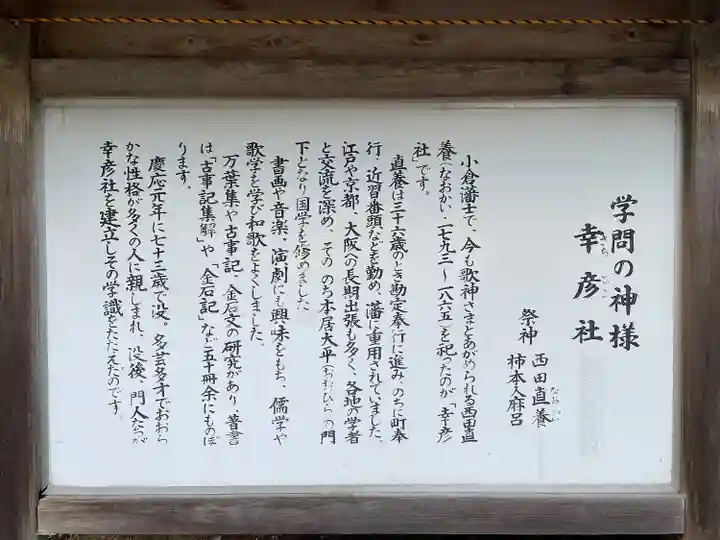 学問の神様
幸彦社
祭神 西田直養
柿本人麻呂
小倉藩士で、今も歌神さまとあがめられる西田直
養(なおかい、一七九三~一八六五)を祀ったのが「幸彦
社」です。
直養は三十六歳のとき勘定奉行に進み、のちに町奉
行・近習番頭などを勤め、藩に重用されていました。
江戸や京都、大阪への長期出張も多く、各地の学者
と交流を深め、そののち本居大平(おおひら)の門
下となり国学を修めました
書画や音楽、演劇にも興味をもち、儒学や
歌学を学び和歌をよくしました。
万葉集や古事記、金石文の研究があり、著書
は「古事記集解」や「金石記」など五十冊余にものぼ
ります。
慶応元年に七十三歳で没。多芸多才でおおら
かな性格が多くの人に親しまれ、没後、門人たちが
幸彦社を建立しその学識をたたえたのです。